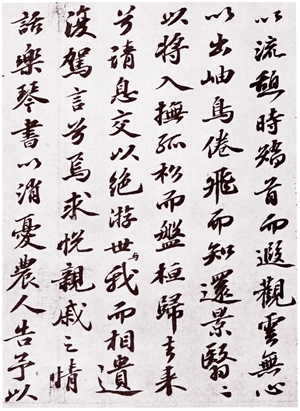 以流憩時矯首而遐觀雲無心
以出岫鳥倦飛而知還景翳〻
以將入撫孤松而盤桓歸去來
兮請息交以絕游世与我而相遺
復駕言兮焉求悅親戚之情
話樂琴書以消憂農人告予以